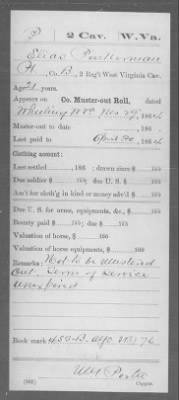 P | 2 Cav. | W.Va.
Elias Parkerman
, Co. B, 2 Reg't West Virginia Cav.
Age 21 years.
Appears on Co. Muster-out Roll, dated
Wheeling W Va Nov 29, 1864
Muster-out to date , 186 .
Last paid to April 30, 1864
Clothing account:
Last settled , 186 ; drawn since $ 100
Due soldier $ 100; due U. S. $ 100
Am't for cloth'g in kind or money adv'd $ 100
Due U. S. for arms, equipments, &c., $ 100
Bounty paid $ 100; due $ 100
Valuation of horse, $ 100
Valuation of horse equipments, $ 100
Remarks: Not to be mustered
out. Term of service
unexpired
Book mark:
(862) Copyist.